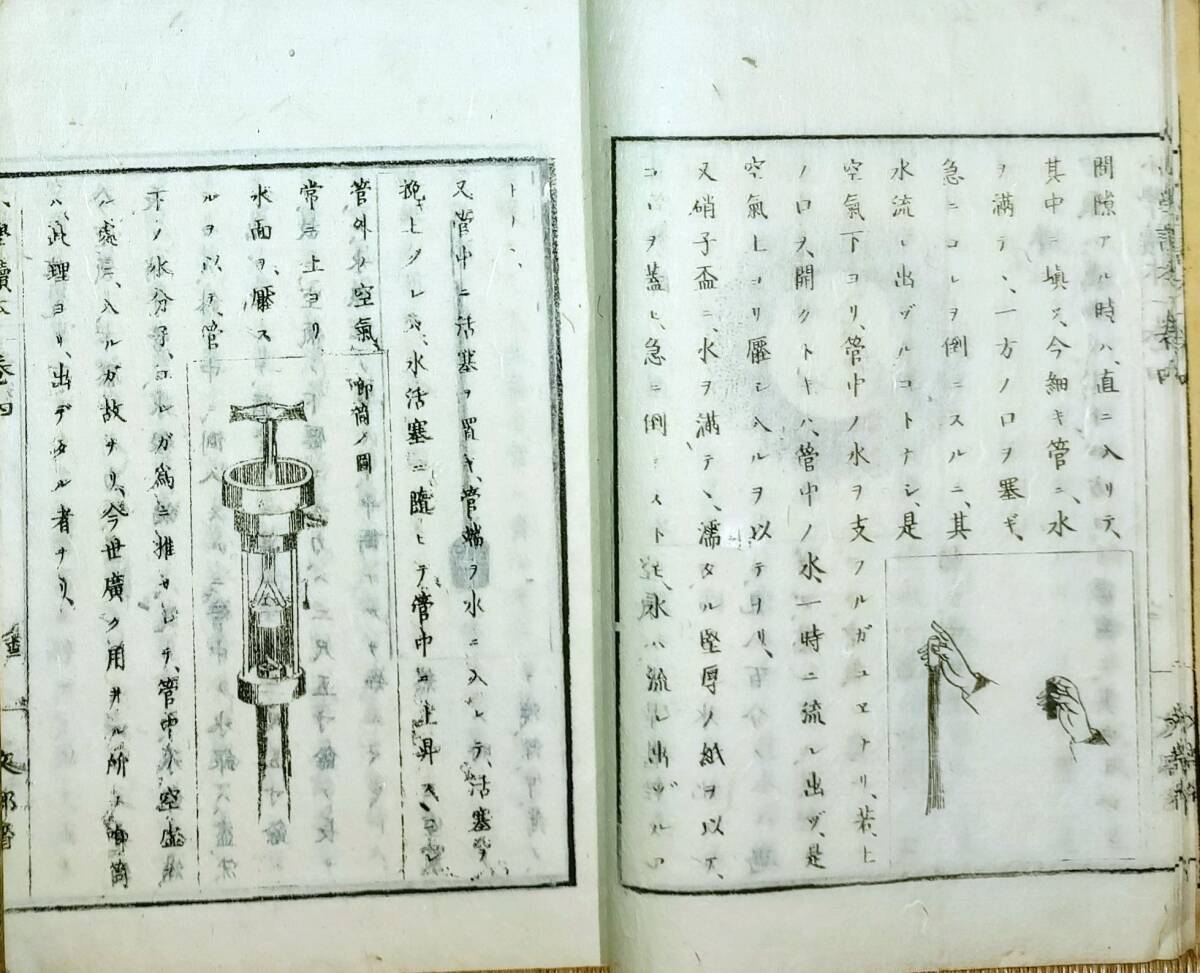 間隙アル時ハ、直ニ入リテ、
其中ニ塡ス、今細キ管ニ、水
ヲ滿テ、一方ノ口ヲ塞ギ、
急ニコレヲ倒ニスルニ、其
水流レ出ヅルコトナシ、是
空氣下ヨリ、管中ノ水ヲ支フルガユヱナリ、若、上
ノ口ヲ、開クトキハ、管中ノ水、一時ニ流レ出ヅ、是
空氣上ヨリ壓シ入ルヲ以テヨリ、
又硝子盃ニ、水ヲ滿テ、濡タル堅厚ノ紙ヲ以テ、
コレヲ蓋ヒ、急ニ倒ニスト雖モ、水ハ流レ出ヅルコ
トナシ、
又管中ニ活塞ヲ置キ、管端ヲ水ニ入レテ、活塞ヲ
挽キ上グレバ、水活塞ニ隨ヒテ管中ニ上昇ス、コレ
管外ノ空氣、
常ニ上ヨリ
水面ヲ、壓ス
ルヲ以テ、管
喞筒ノ圖
下ノ水分子、コレガ爲ニ推サレテ、管中ノ空虚
ノ處ニ、入ルガ故ナリ、今世廣ク用ヰル所ノ喞筒
ハ、此理ヨリ、出デタル者ナリ、
小學讀本 卷四
文部省